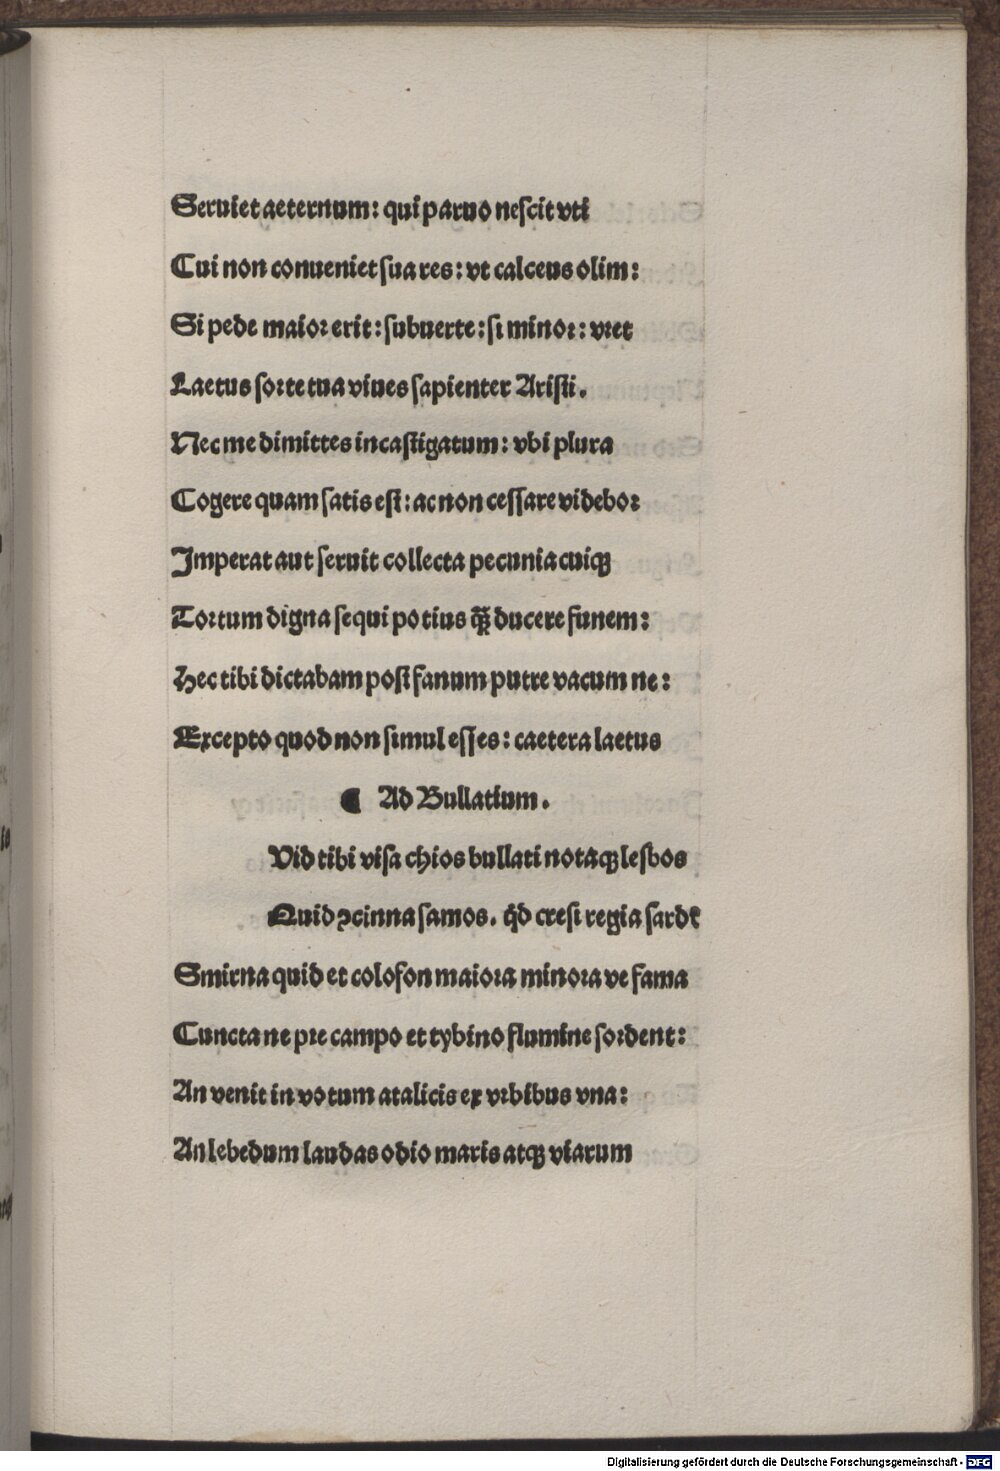 Seruiet aeternum: qui paruo nescit vti
Cui non conueniet sua res: vt calceus olim:
Si pede maior erit: subuerte: si minor: vret
Laetus sorte tua viues sapienter Aristi.
Nec me dimittes incastigatum: vbi plura
Cogere quam satis est: ac non cessare videbor
Imperat aut seruit collecta pecunia cuiqꝫ
Tortum digna sequi potius qꝫ̃ ducere funem:
Hec tibi dictabam post fanum putre vacum ne:
Excepto quod non simul esses: caetera laetus
¶ Ad Bullatium.
Vid tibi visa chios bullati notaqꝫ lesbos
Quid ꝯcinna samos. qd̓ cresi regia sardꝭ
Smirna quid et colofon maiora minora ve fama
Cuncta ne pre campo et tybino flumine sordent:
An venit in votum atalicis ex vrbibus vna:
An lebedum laudas odio maris atqꝫ viarum
Digitalisierung gefördert durch die Deutsche Forschungsgemeinschaft - DFG